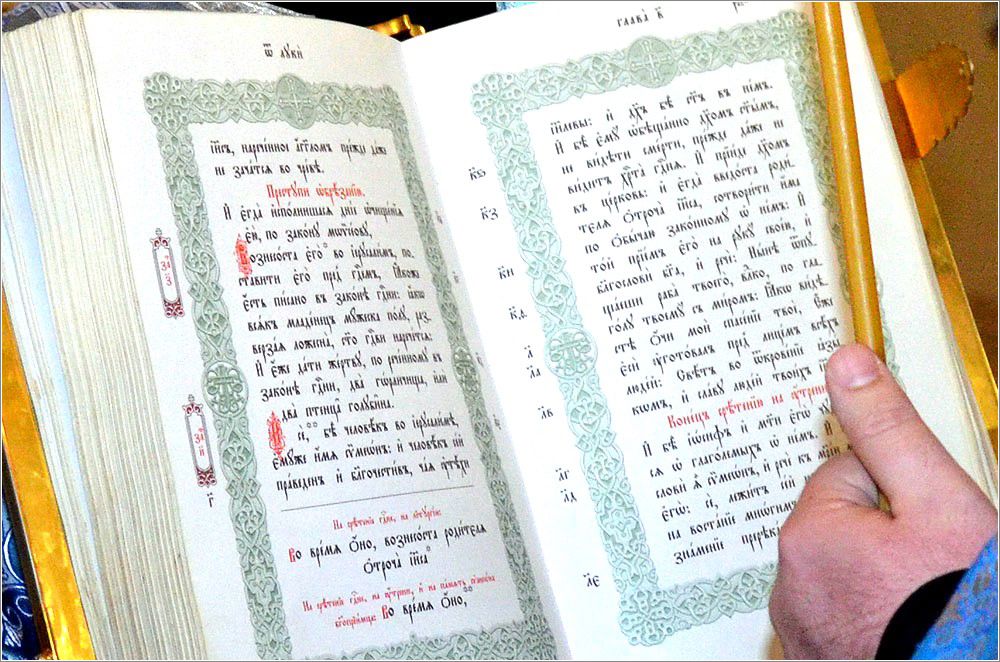 Ѿ лꙋкѝ
і҆и҃съ, нарече́нное а҆́гг҃ломъ пре́жде да́же
не зача́тсѧ во чре́вѣ.
Престꙋпѝ ѡ҆брѣ́занїѧ.
И҆ є҆гда̀ и҆спо́лнишасѧ дні́е ѡ҆чище́нїѧ
є҆ѧ̀, по зако́нꙋ мѡѷсе́овꙋ,
Вознесо́ста є҆го̀ во і҆ерⷭ҇ли́мъ, по-
ста́вити є҆го̀ пред̾ гдⷭ҇емъ, Ꙗ҆́коже
є҆́сть пи́сано въ зако́нѣ гдⷭ҇ни: ꙗ҆́кѡ
всѧ́къ младе́нецъ мꙋ́жеска по́лꙋ, раз-
верза́ѧ ложесна̀, ст҃о гдⷭ҇ви нарече́тсѧ:
И҆ є҆́же да́ти же́ртвꙋ, по рече́нномꙋ въ
зако́нѣ гдⷭ҇ни, два̀ го́рличища, и҆лѝ
два̀ птенца̀ голꙋби̑на.
И҆ сѐ, бѣ̀ человѣ́къ во і҆ерⷭ҇ли́мѣ,
є҆мꙋ́же и҆́мѧ сѷмеѡ́нъ: и҆ человѣ́къ се́й
пра́веденъ и҆ благочести́въ, ча́ѧ ᲂу҆тѣ́хи
На срѣ́тенїе гдⷭ҇не, на лїтꙋргі́и:
Во вре́мѧ ѻ҆́но, вознесо́ста роди́телѧ
ѻ҆троча̀ і҆и҃са
На срѣ́тенїе гдⷭ҇не, на ᲂу҆́трени, и҆ на па́мѧть сѷмеѡ́на
бг҃опрїи́мца: Во вре́мѧ ѻ҆́но,
заⷱ҇ з҃
заⷱ҇ и҃
г҃
Глава̀ в҃
і҆и҃левы: и҆ дх҃ъ бѣ̀ ст҃ъ въ не́мъ.
И҆ бѣ̀ є҆мꙋ̀ ѡ҆бѣща́нно дх҃омъ ст҃ы́мъ,
не ви́дѣти сме́рти, пре́жде да́же не
ви́дитъ хрⷭ҇та̀ гдⷭ҇нѧ. И҆ прїи́де дх҃омъ
въ це́рковь: и҆ є҆гда̀ введо́ста роди́-
телѧ ѻ҆троча̀ і҆и҃са, сотвори́ти и҆́ма
по ѡ҆бы́чаю зако́нномꙋ ѡ҆ не́мъ: И҆
то́й прїе́мъ є҆го̀ на рꙋкꙋ̀ своє́ю, и҆
благословѝ бг҃а, и҆ речѐ: Ны́нѣ ѿпꙋ-
ща́еши раба̀ твоего̀, влⷣко, по гла-
го́лꙋ твоемꙋ̀ съ ми́ромъ: Ꙗ҆́кѡ ви́дѣ-
стѣ ѻ҆́чи моѝ спасе́нїе твоѐ, Є҆́же
є҆сѝ ᲂу҆гото́валъ пред̾ лице́мъ всѣ́хъ
люде́й: Свѣ́тъ во ѿкрове́нїе ꙗ҆зы́-
кѡмъ, и҆ сла́вꙋ люде́й твои́хъ
Коне́цъ срѣ́тенїю на ᲂу҆́трени
И҆ бѣ̀ і҆ѡ́сифъ и҆ мт҃и є҆гѡ̀
сѧ ѡ҆ глаго́лемыхъ ѡ҆ не́мъ. И҆
словѝ ѧ҆̀ сѷмеѡ́нъ, и҆ речѐ къ марі́и
є҆гѡ̀: сѐ, лежи́тъ се́й
на воста́нїе мнѡ́гимъ
зна́менїе пререка́
к҃ѕ
к҃з
к҃и
к҃ѳ
л҃
л҃а
л҃в
л҃г
л҃д
л҃є